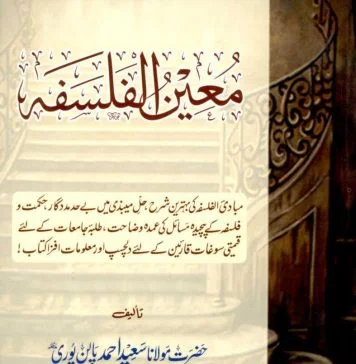 معین الفلسفہ
مبادیٔ الفلسفہ کی بہترین شرح، حل میبذی میں بے حد مددگار، حکمت و
فلسفہ کے پیچیدہ مسائل کی عمدہ وضاحت، طلبۂ جامعات کے لئے
قیمتی سوغات قارئین کے لئے دلچسپ اور معلومات افزا کتاب!
تالیف
حضرت مولانا سعید احمد پالن پوری